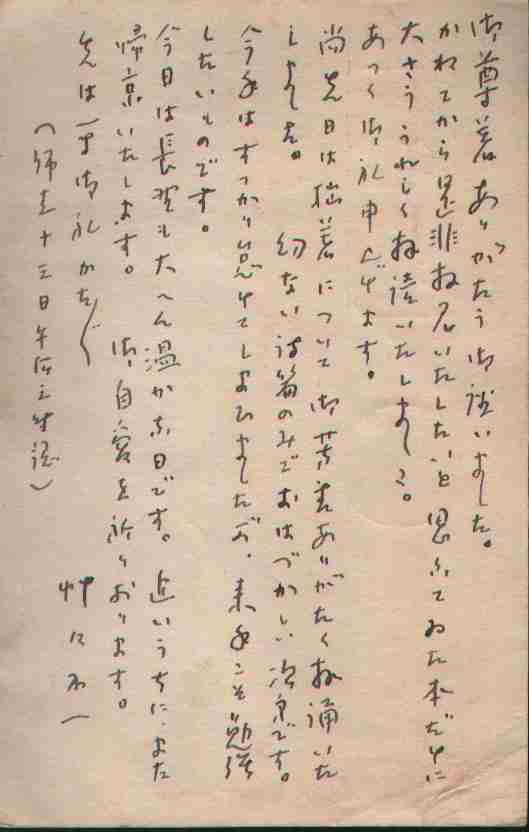 御尊著ありがたう御座いました。
かねてから是非拝見いたしたいと思ふてゐた本だけに
大さううれしく拝読いたしました。
あつく御礼申上げます。
尚先日は拙著について御芳書ありがたく拝誦いた
しました。幼ない詩篇のみでおはづかしい次第です。
今年はすつかり怠けてしまひましたが、来年こそ勉強
したいものです。
今日は長野も大へん温かな日です。近いうちに、また
帰京いたします。御自愛を祈りおります。
先は右御礼かたがた
(師走十三日午后
一